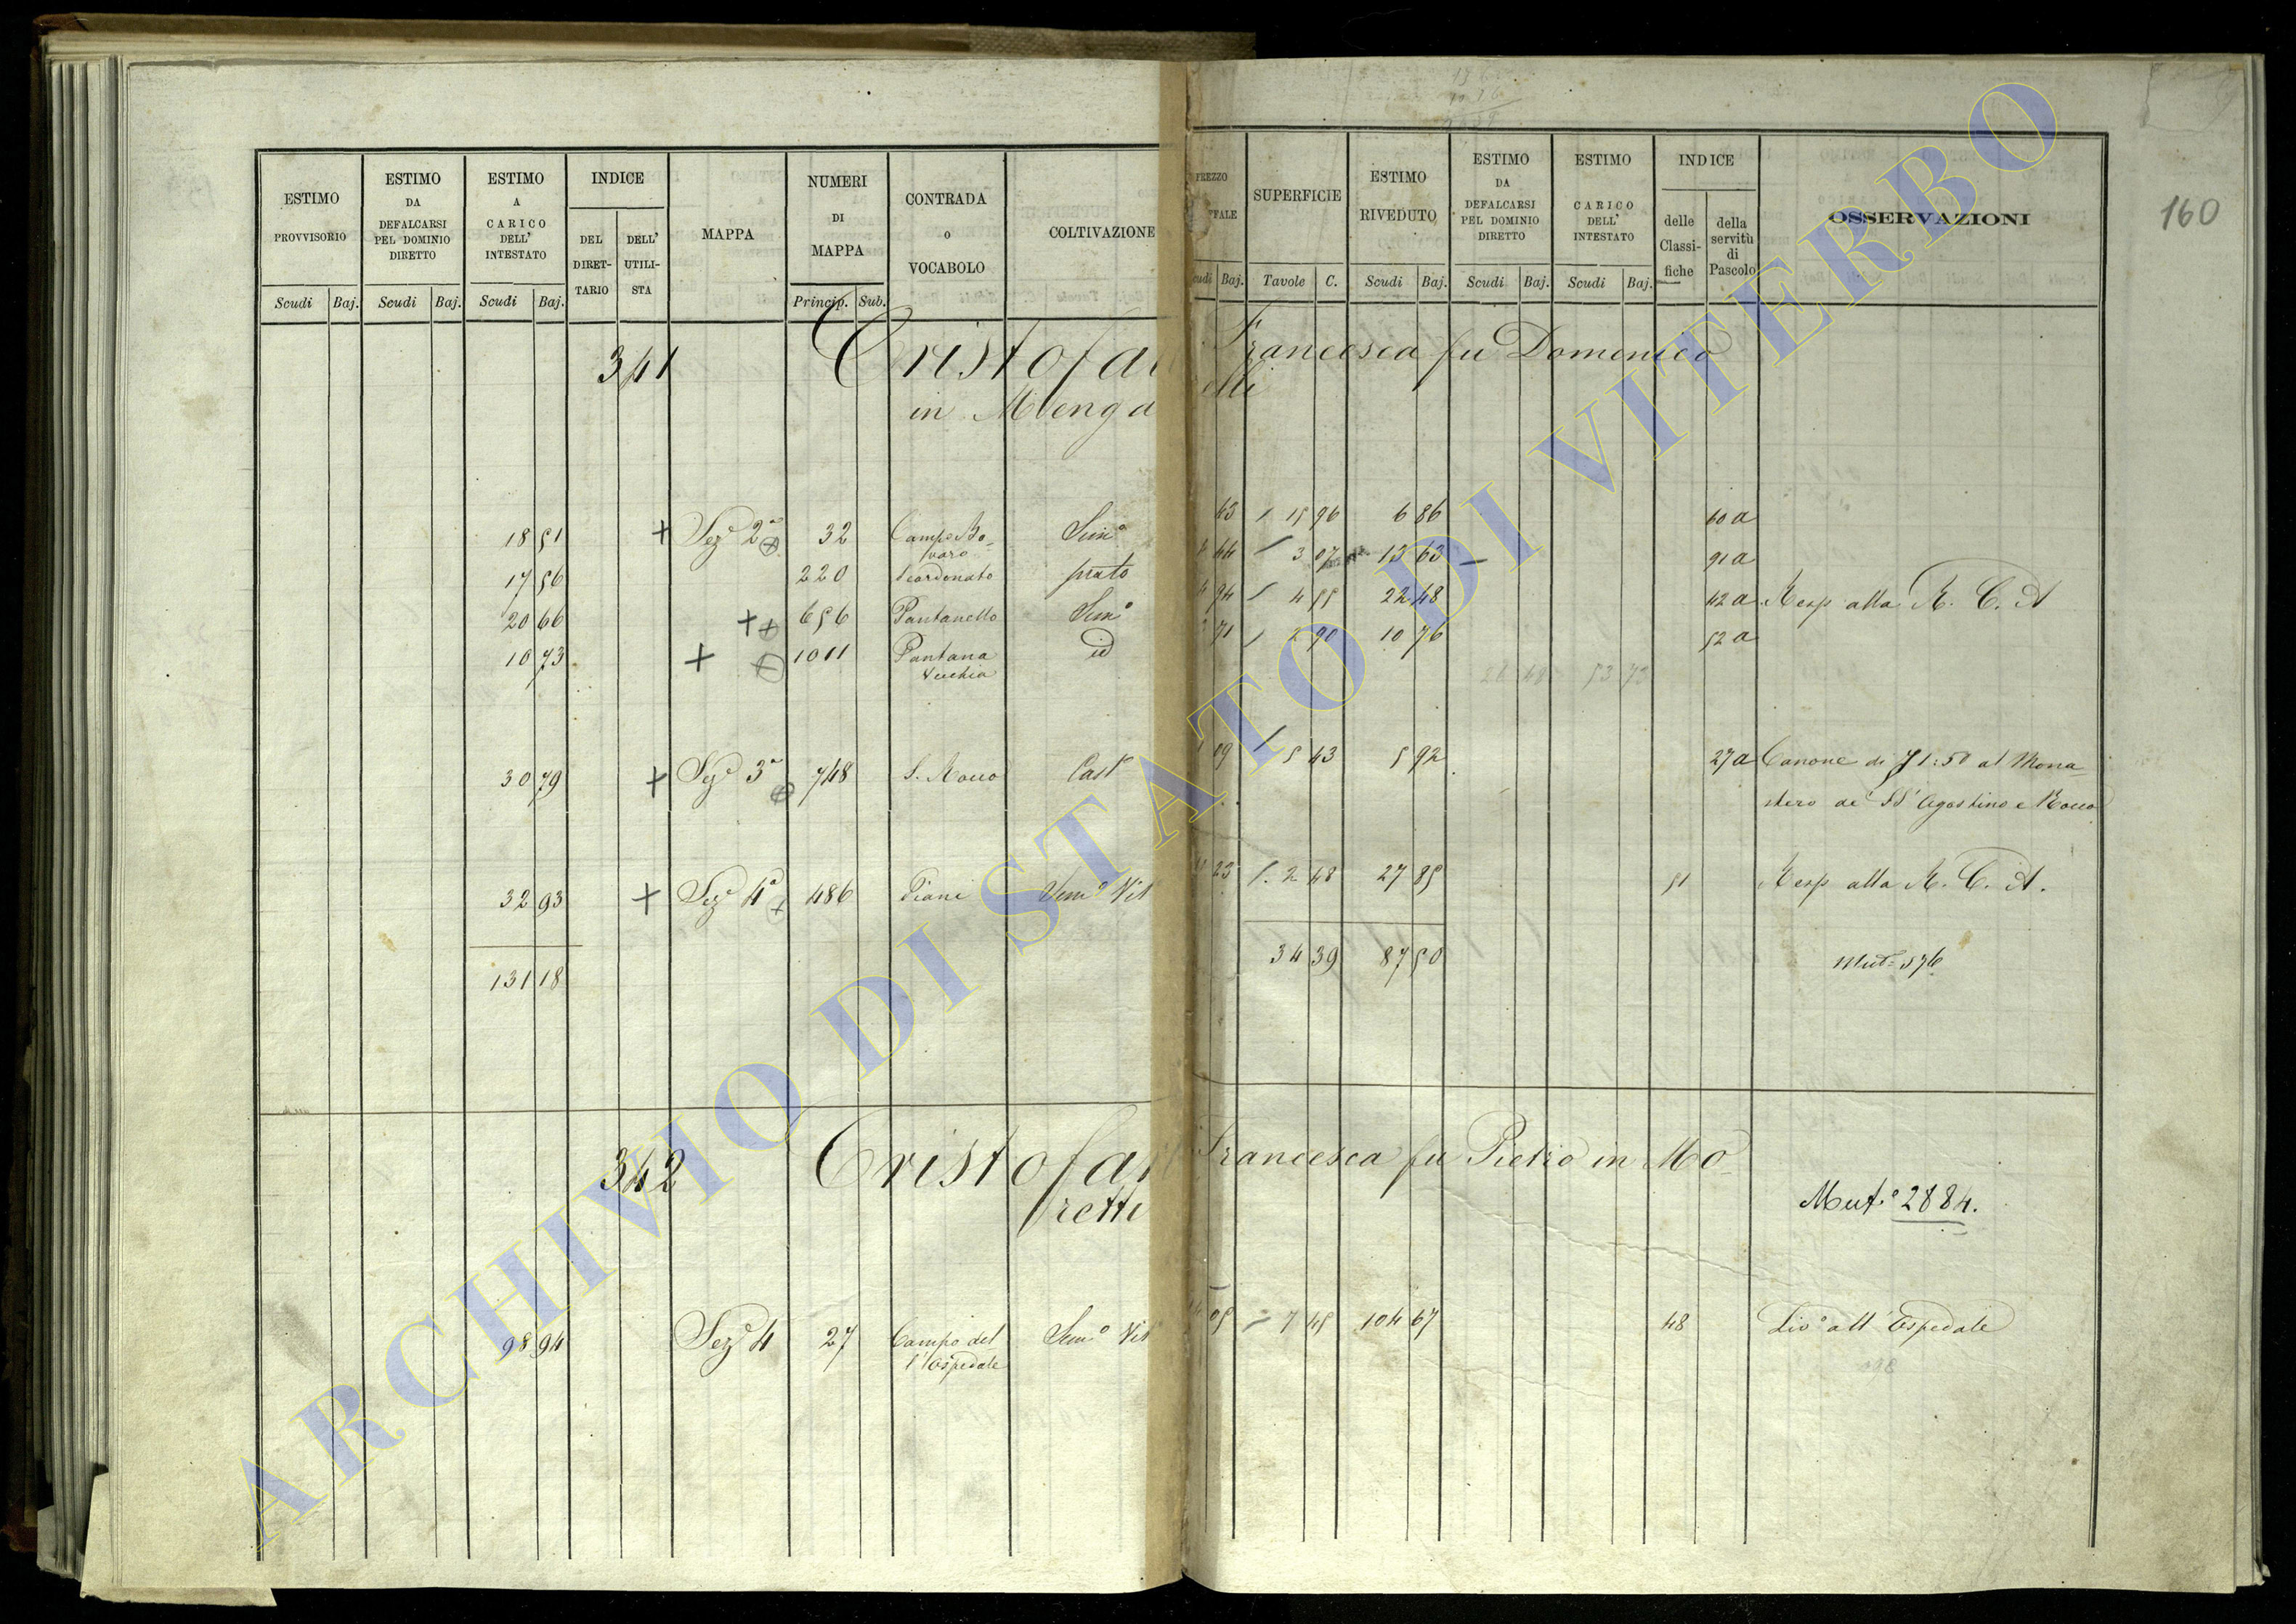 160
ESTIMO PROVVISORIO
ESTIMO DA DEFALCARSI PEL DOMINIO DIRETTO
ESTIMO A CARICO DELL' INTESTATO
INDICE
DEL DIRET-TARIO
DELL' UTILI-STA
MAPPA
NUMERI DI MAPPA
CONTRADA o VOCABOLO
COLTIVAZIONE
Scudi Baj. Scudi Baj. Scudi Baj. Princip. Sub.
PREZZO
SUPERFICIE
ESTIMO RIVEDUTO
ESTIMO DA DEFALCARSI PEL DOMINIO DIRETTO
ESTIMO CARICO DELL' INTESTATO
INDICE
delle Classi-fiche
della servitù di Pascolo
OSSERVAZIONI
Baj. Tavole C. Scudi Baj. Scudi Baj. Scudi Baj.
341 Cristofa Francesca fu Domenico
in Menga elli
18 51 + Sez.e 2a 32 Campo Bo- Sem.o 15 96 6 86 60 a
varo
17 56 220 prato 3 07 13 63 91 a
20 66 ++ 656 Pantanello Sem.o 94 4 55 22 48 42 a Resp alla R. C. A
10 73 + + 1011 Pantana id 71 90 10 76 52 a
Vecchia
53 73
30 79 + Sez.e 3a 748 S. Rocco Cast 09 5 43 5 92 27 a Canone di 1:50 al Mona-
stero de' SS' Agostino e Rocco
32 93 + Sez.e 4a 486 Piani Sem.o Vit 23 2 48 27 85 51 Resp alla R. C. A.
131 18 34 39 87 50
342 Cristofa Francesca fu Pietro in Mo-
retti
Mut.e 2884.
98 94 Sez.e 4 27 Campo del Sem.o Vit 05 7 45 104 67 48 Liv.o all' Ospedale
l'Ospedale
ARCHIVIO DI STATO DI VITERBO